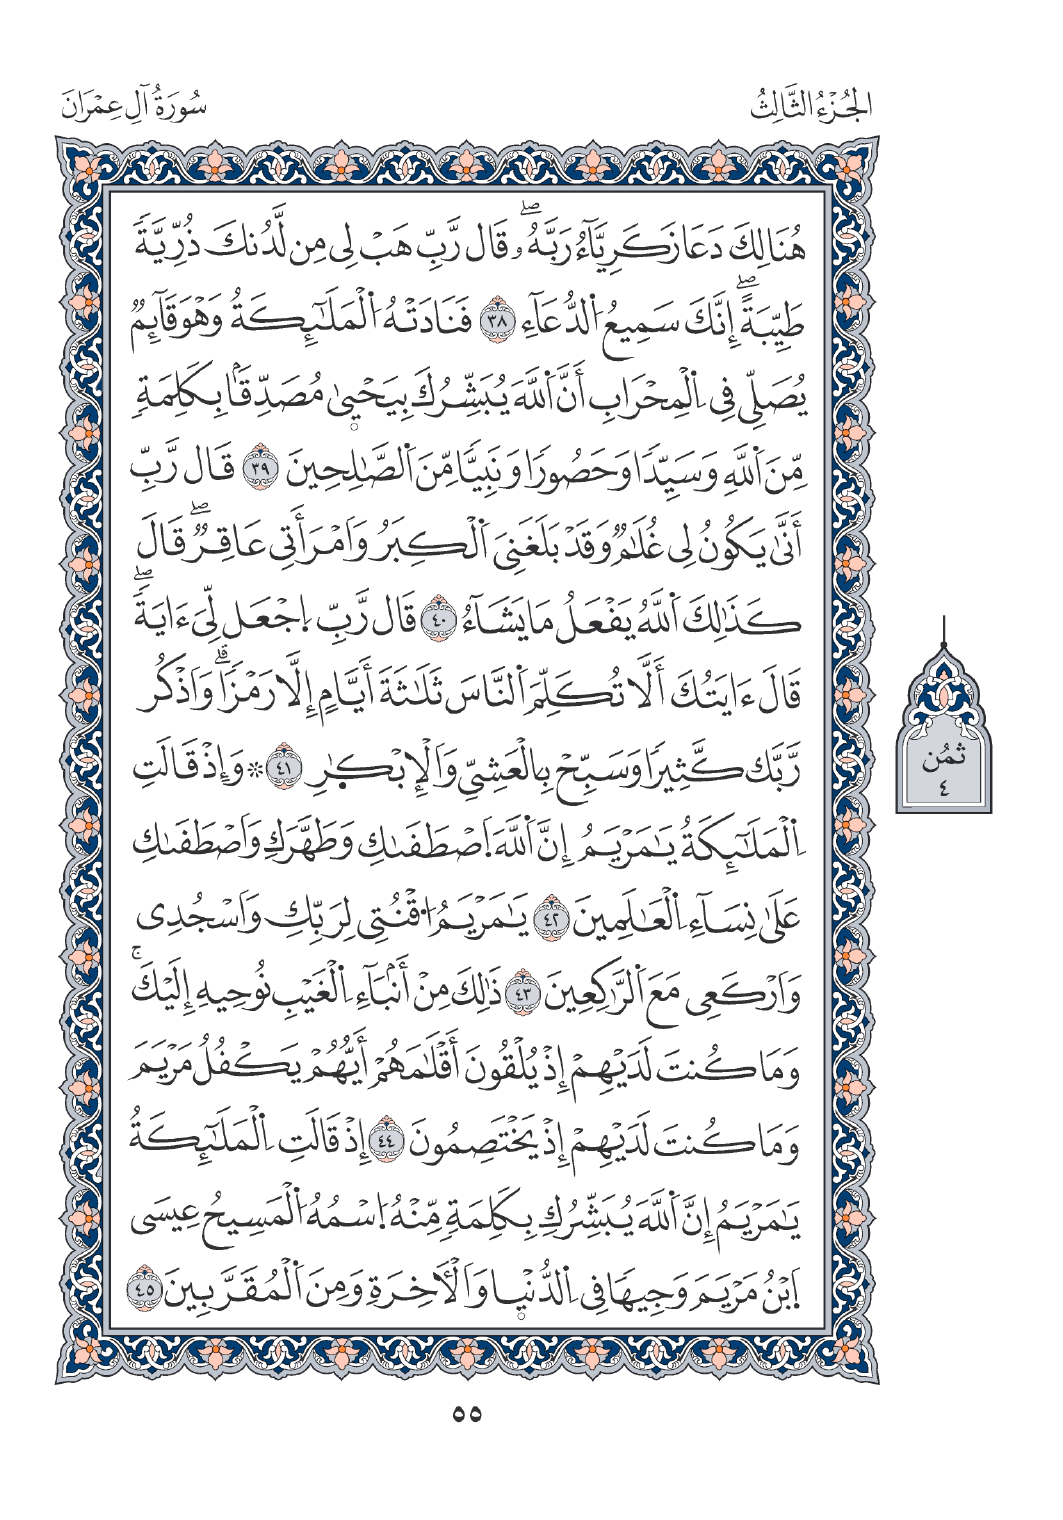 الجُزْءُ الثَّالِثُ
سُورَةُ آلِ عِمْرَانَ
هُنَالِكَ دَعَا زَكَرِيَّآءُ رَبَّهُۥۖ قَال رَّبِّ هَبْ لِى مِن لَّدُنكَ ذُرِّيَّةٗ
طَيِّبَةًۖ إِنَّكَ سَمِيعُ اُ۬لدُّعَآءِ ٣٨ فَنَادَتْهُ اُ۬لْمَلَٰٓئِكَةُ وَهْوَ قَآئِمٞ
يُصَلِّى فِى اِ۬لْمِحْرَابِ أَنَّ اَ۬للَّهَ يُبَشِّرُكَ بِيَحْيۭىٰ مُصَدِّقَۢا بِكَلِمَةٖ
مِّنَ اَ۬للَّهِ وَسَيِّدٗا وَحَصُورٗا وَنَبِيّٗا مِّنَ اَ۬لصَّٰلِحِينَ ٣٩ قَال رَّبِّ
أَنَّىٰ يَكُونُ لِى غُلَٰمٞ وَقَدْ بَلَغَنِىَ اَ۬لْكِبَرُ وَاَمْرَأَتِى عَاقِرٞۖ قَالَ
كَذَٰلِكَ اَ۬للَّهُ يَفْعَلُ مَا يَشَآءُ ٤٠ قَال رَّبِّ اِ۪جْعَل لِّىَ ءَايَةٗۖ
قَالَ ءَايَتُكَ أَلَّا تُكَلِّمَ اَ۬لنَّاسَ ثَلَٰثَةَ أَيَّامٍ إِلَّا رَمْزٗاۗ وَاَذْكُر
رَّبَّك كَّثِيرٗا وَسَبِّحْ بِالْعَشِىِّ وَالْإِبْكٰ۪رِ ٤١ ۞ وَإِذْ قَالَتِ
اِ۬لْمَلَٰٓئِكَةُ يَٰمَرْيَمُ إِنَّ اَ۬للَّهَ اَ۪صْطَفَىٰكِ وَطَهَّرَكِ وَاَصْطَفَىٰكِ
عَلَىٰ نِسَآءِ اِ۬لْعَٰلَمِينَ ٤٢ يَٰمَرْيَمُ اُ۟قْنُتِى لِرَبِّكِ وَاَسْجُدِى
وَاَرْكَعِى مَعَ اَ۬لرَّٰكِعِينَ ٤٣ ذَٰلِكَ مِنْ أَنۢبَآءِ اِ۬لْغَيْبِ نُوحِيهِ إِلَيْكَۚ
وَمَا كُنتَ لَدَيْهِمْ إِذْ يُلْقُونَ أَقْلَٰمَهُمْ أَيُّهُمْ يَكْفُلُ مَرْيَمَ
وَمَا كُنتَ لَدَيْهِمْ إِذْ يَخْتَصِمُونَ ٤٤ إِذْ قَالَتِ اِ۬لْمَلَٰٓئِكَةُ
يَٰمَرْيَمُ إِنَّ اَ۬للَّهَ يُبَشِّرُكِ بِكَلِمَةٖ مِّنْهُ اُ۪سْمُهُ اُ۬لْمَسِيحُ عِيسَى
اَ۪بْنُ مَرْيَمَ وَجِيهٗا فِى اِ۬لدُّنْيۭا وَالْأٓخِرَةِ وَمِنَ اَ۬لْمُقَرَّبِينَ ٤٥
ثمُن
٤
٥٥